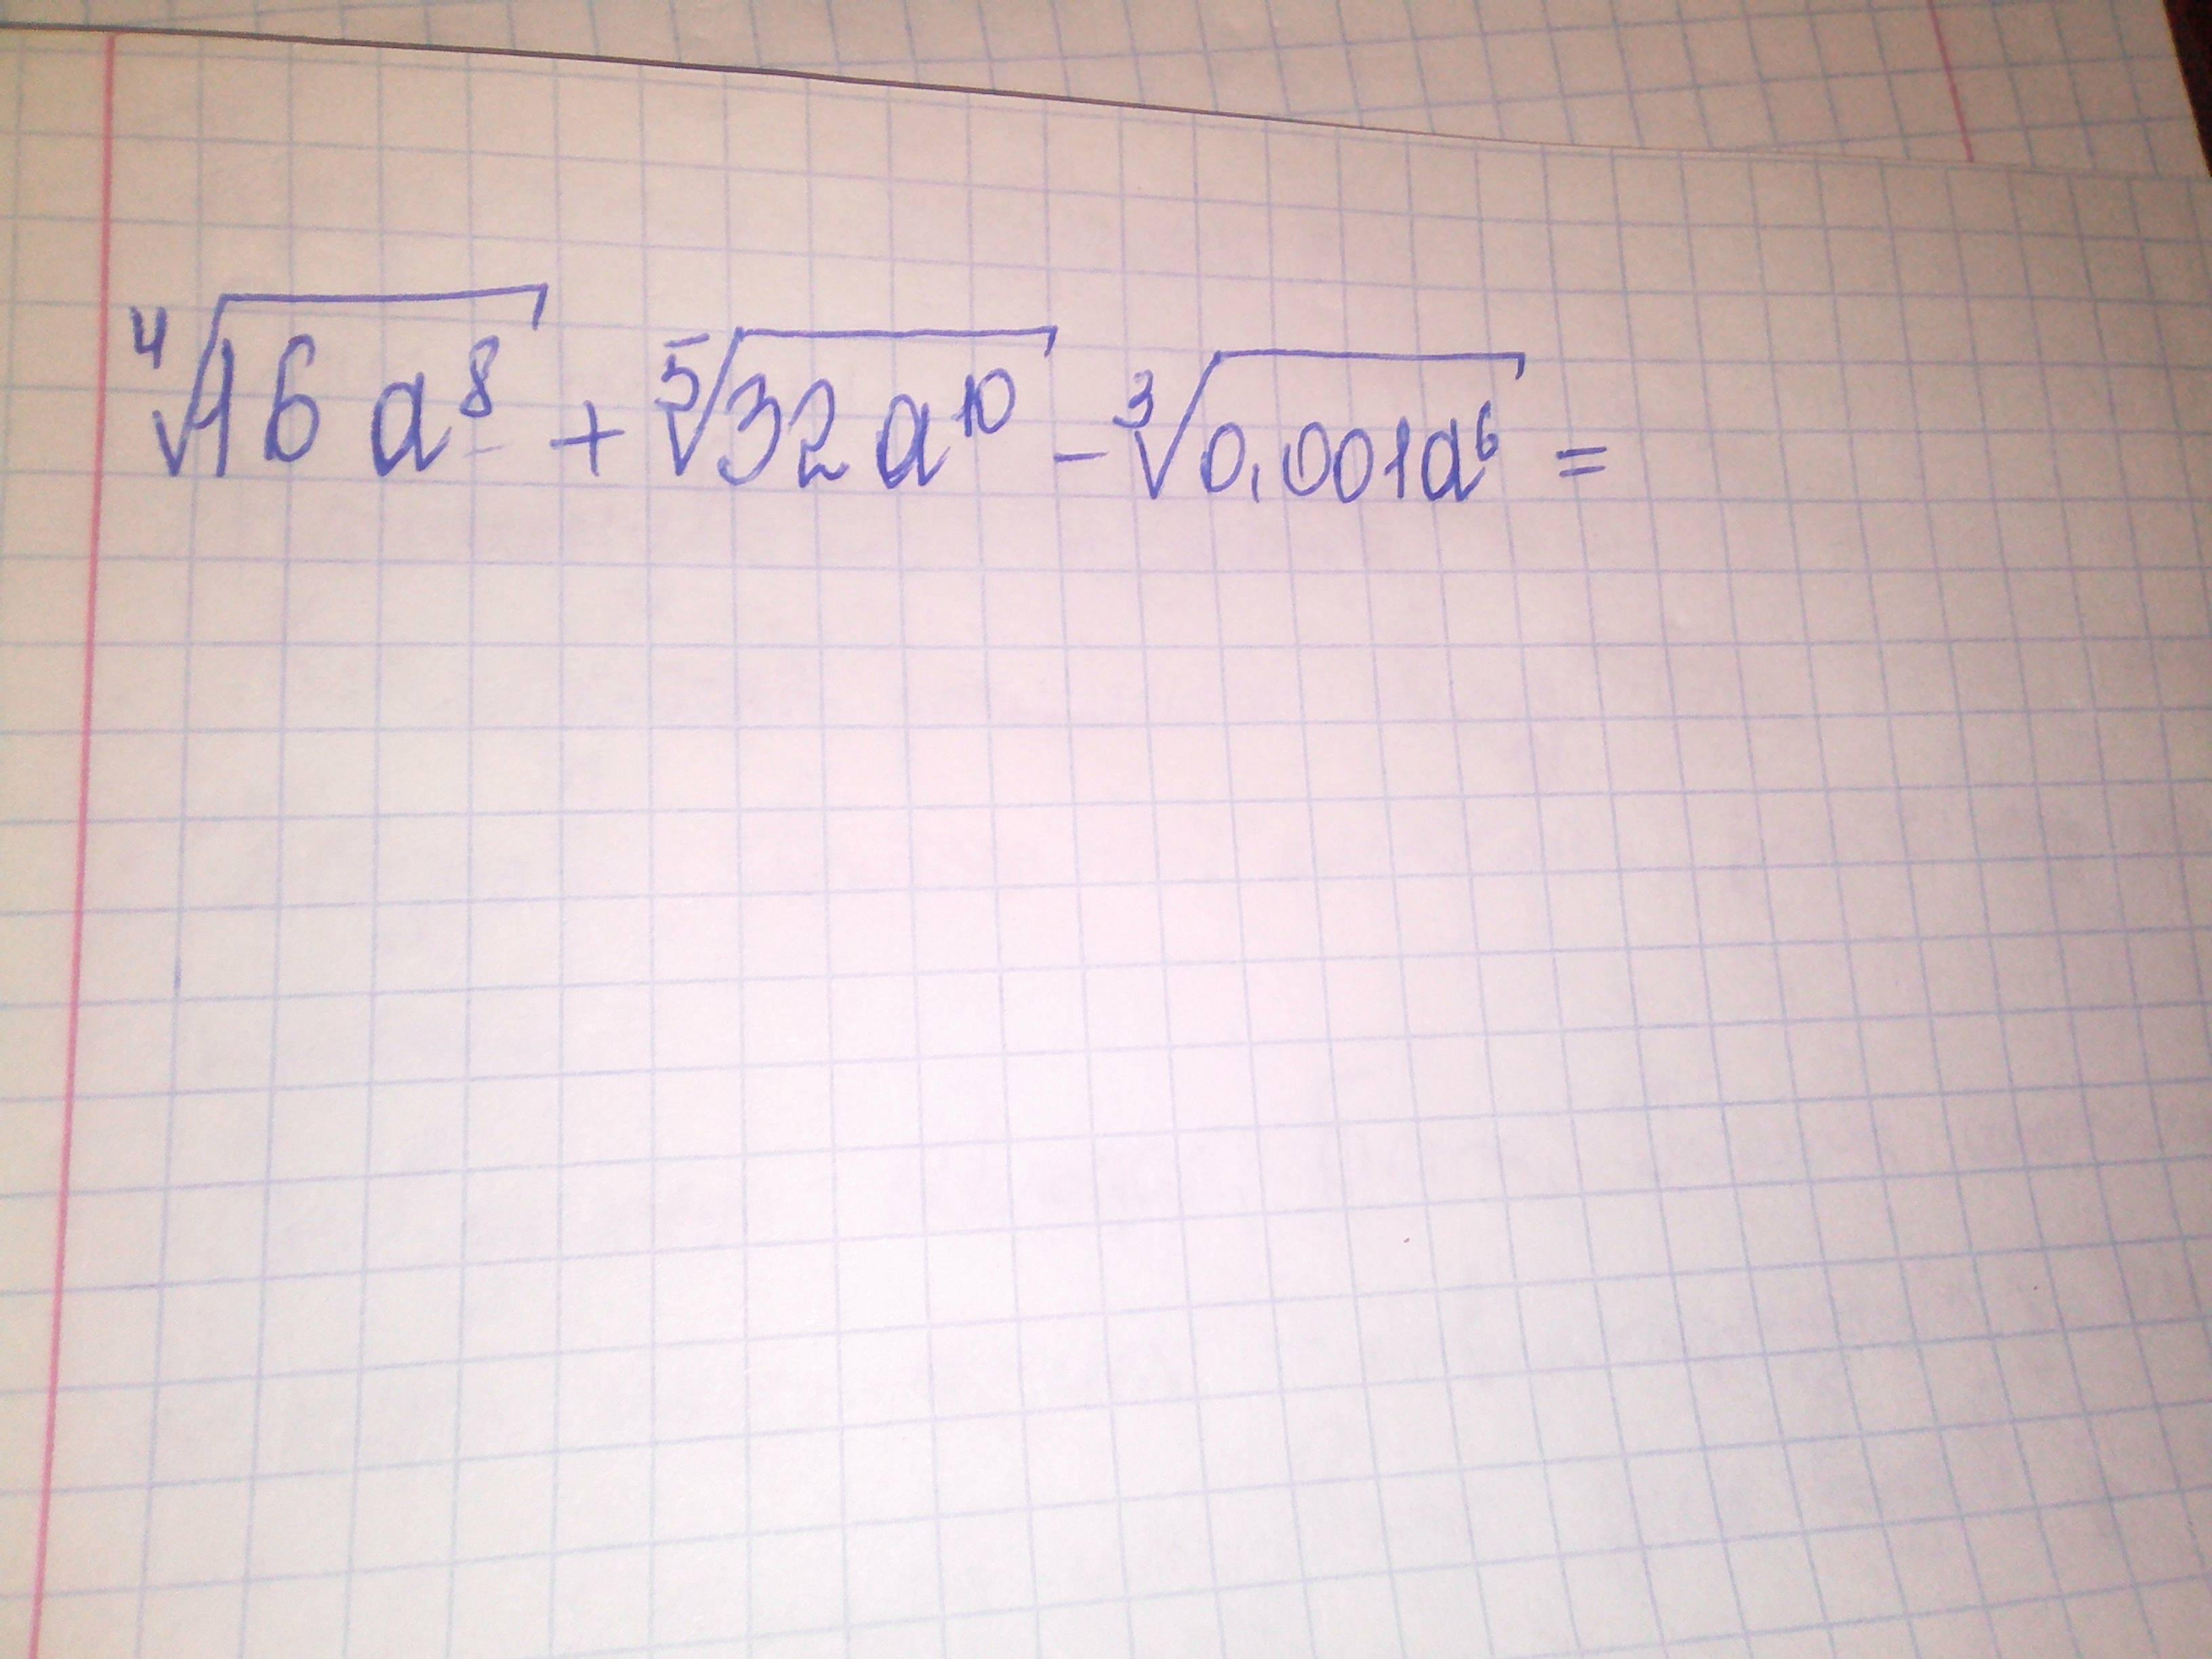 ⁴√16a⁸ + ⁵√32a¹⁰ - ³√0,001a⁶ =